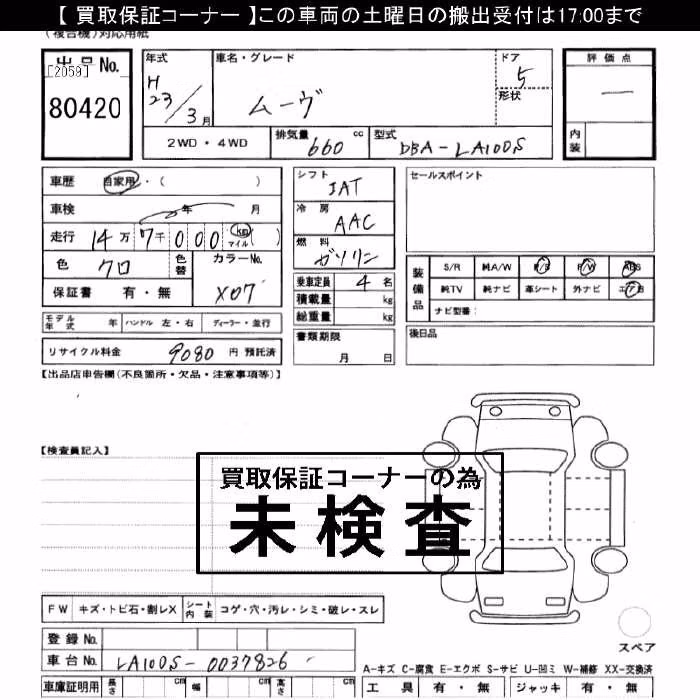 【 買取保証コーナー 】この車両の土曜日の搬出受付は17:00まで
(複合機)対応用紙
出品No.
[2059]
80420
年式
H 23/3月
車名・グレード
ムーヴ
ドア
5
形状
評価点
―
内装
2WD・4WD
排気量 660 cc
型式 DBA-LA100S
車歴 自家用・( )
車検 年 月
走行 14万 7千 000 km マイル ( )
色 クロ
色替
カラーNo.
X07
保証書 有・無
シフト
IAT
冷房
AAC
燃料
ガソリン
乗車定員 4 名
積載量 kg
総重量 kg
セールスポイント
装備品
S/R 純A/W P/S P/W ABS
純TV 純ナビ 革シート 外ナビ エアB
ナビ型番:
モデル年式 年 ハンドル 左・右 ディーラー・並行
リサイクル料金 9080 円 預託済
書類期限
月 日
後日品
【出品店申告欄(不良箇所・欠品・注意事項等)】
【検査員記入】
買取保証コーナーの為
未検査
FW キズ・トビ石・割レX シート内装 コゲ・穴・汚レ・シミ・破レ・スレ
スペア
登録No.
車台No. LA100S-0037826
A-キズ C-腐食 E-エクボ S-サビ U-凹ミ W-補修 XX-交換済
車庫証明用 長さ cm 幅 cm 高さ cm
工具 有・無 ジャッキ 有・無